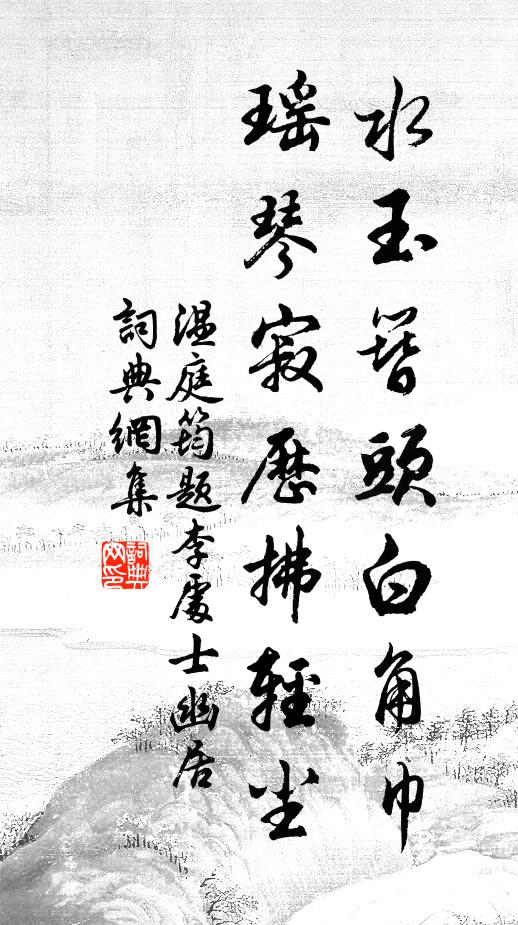 水玉簪頭白角巾
瑶琴寂歷拂輕尘
温庭筠題李處士幽居
詞典網集
詞典网印